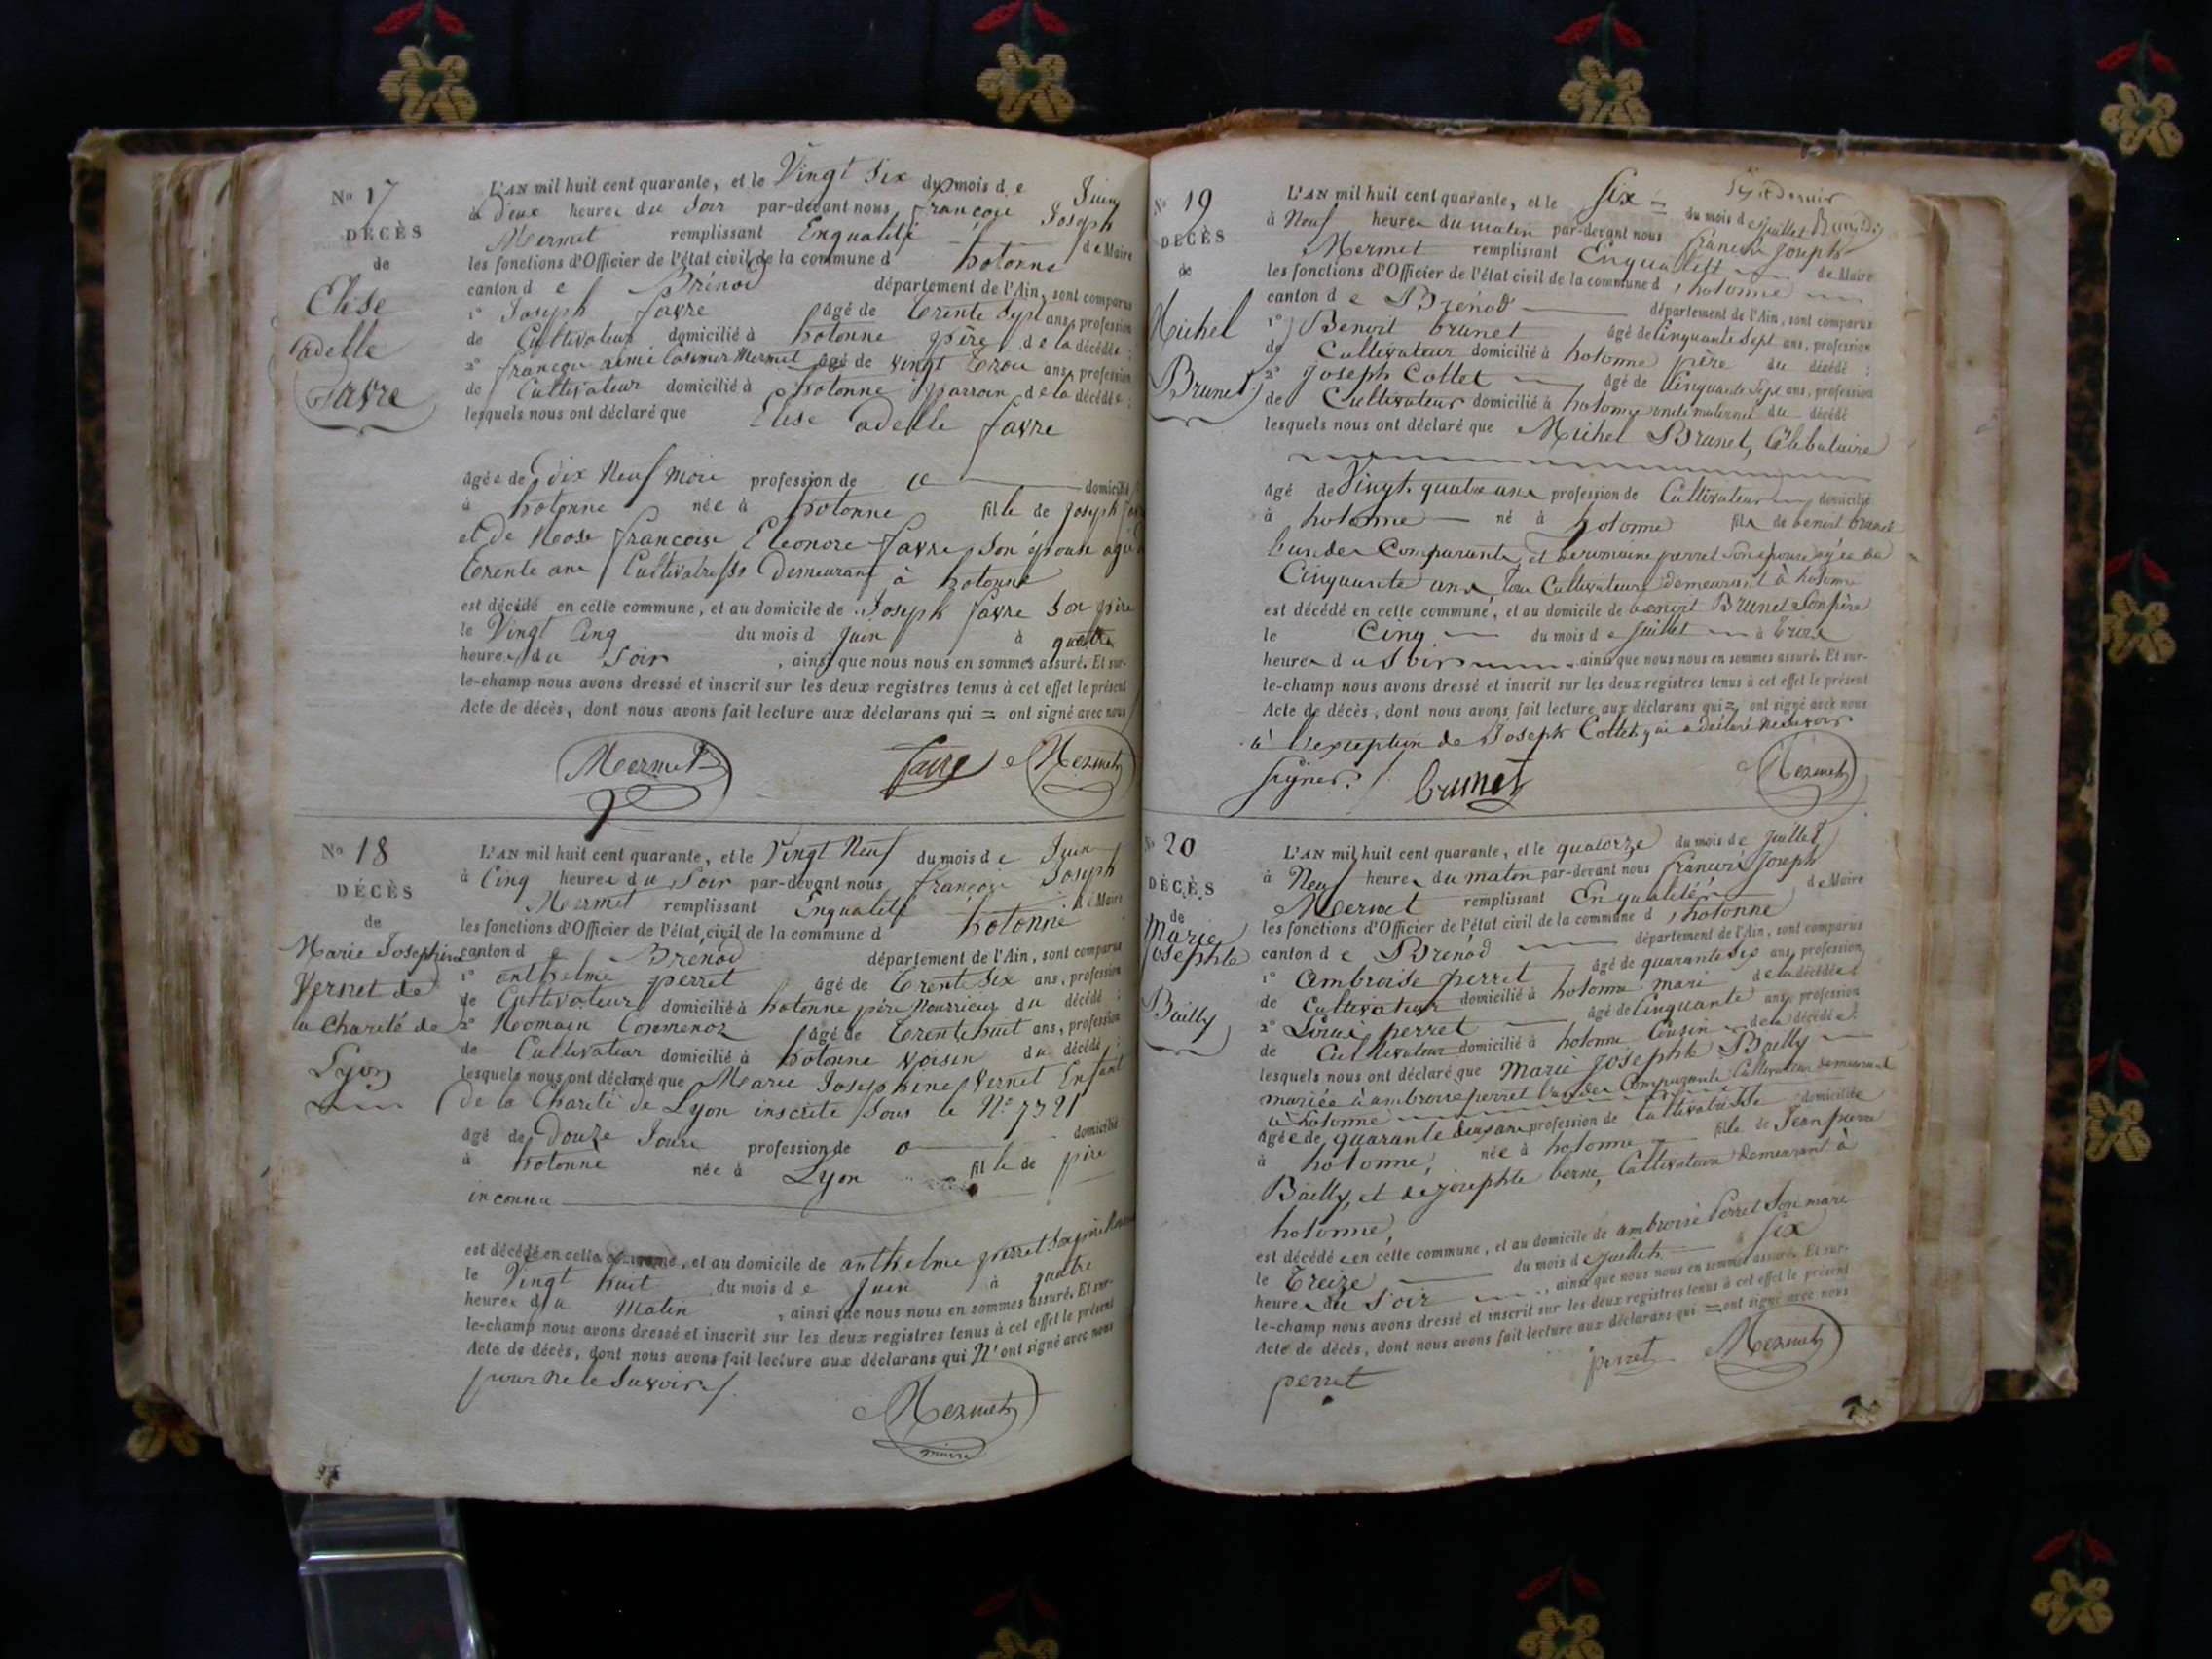 No 17
DÉCÈS
de
Elise
adelle
Favre
L'AN mil huit cent quarante, et le Vingt Six du mois de Juin
à deux heures du Soir par-devant nous françois Joseph
Mermet remplissant Enqualité de Maire
les fonctions d'Officier de l'état civil de la commune d hotonne
canton de Brénod département de l'Ain, sont comparus
1° Joseph favre âgé de trente Sept ans, profession
de Cultivateur domicilié à hotonne père de la décédée ;
2° françois aimé Casimir Mermet âgé de vingt trois ans, profession
de Cultivateur domicilié à hotonne parrain de la décédée ;
lesquels nous ont déclaré que Elise adelle favre
âgée de dix Neuf Mois profession de domicilié
à hotonne née à hotonne fille de Joseph
et de Rose francoise Eleonore favre, Son épouse agée
trente ans Cultivatrisse Demeurant à hotonne
est décédé en cette commune, et au domicile de Joseph favre Son père
le Vingt Cinq du mois d Juin à quatre
heures du Soir , ainsi que nous nous en sommes assuré. Et sur-
le-champ nous avons dressé et inscrit sur les deux registres tenus à cet effet le présent
Acte de décès, dont nous avons fait lecture aux déclarans qui = ont signé avec nous
Mermet favre Mermet
No 18
DÉCÈS
de
Marie Josephine
Vernet de
la Charité de
Lyon
L'AN mil huit cent quarante, et le Vingt Neuf du mois de Juin
à Cinq heures du Soir par-devant nous françois Joseph
Mermet remplissant Enqualité de Maire
les fonctions d'Officier de l'état civil de la commune d hotonne
canton de Brénod département de l'Ain, sont comparus
1° anthelme perret âgé de trente Six ans, profession
de Cultivateur domicilié à hotonne père Nourricier du décédé ;
2° Romain âgé de trente huit ans, profession
de Cultivateur domicilié à hotonne voisin du décédé ;
lesquels nous ont déclaré que Marie Josephine Vernet Enfant
de la Charité de Lyon inscrite Sous le No 7321
âgé de Douze Jours profession de domicilié
à hotonne née à Lyon fille de père
inconnu
est décédé en cette commune, et au domicile de anthelme perret Son père
le Vingt huit du mois de Juin à quatre
heures du Matin , ainsi que nous nous en sommes assuré. Et sur-
le-champ nous avons dressé et inscrit sur les deux registres tenus à cet effet le présent
Acte de décès, dont nous avons fait lecture aux déclarans qui N'ont signé avec nous
pour ne le Savoir
Mermet
maire
No 19
DÉCÈS
de
Michel
Brunet
L'AN mil huit cent quarante, et le Six = du mois de Juillet
à Neuf heures du matin par-devant nous francois Joseph
Mermet remplissant Enqualité de Maire
les fonctions d'Officier de l'état civil de la commune d'hotonne
canton de Brénod département de l'Ain, sont comparus
1° Benoit brunet âgé de Cinquante Sept ans, profession
de Cultivateur domicilié à hotonne père du décédé ;
2° Joseph Collet âgé de Cinquante Sept ans, profession
de Cultivateur domicilié à hotonne oncle maternel du décédé
lesquels nous ont déclaré que Michel Brunet, Célibataire
âgé de Vingt quatre ans profession de Cultivateur domicilié
à hotonne né à hotonne fils de benoit brunet
l'un des Comparants, et de romaine perret Son épouse agée de
Cinquante ans, tous Cultivateurs demeurant à hotonne
est décédé en cette commune, et au domicile de benoit Brunet Son père
le Cinq du mois de Juillet à treize
heures du Soir ainsi que nous nous en sommes assuré. Et sur-
le-champ nous avons dressé et inscrit sur les deux registres tenus à cet effet le présent
Acte de décès, dont nous avons fait lecture aux déclarans qui = ont signé avec nous
à l'exception de Joseph Collet qui a déclaré ne Savoir
Signer. brunet Mermet
No 20
DÉCÈS
de
Marie
Josephte
Bailly
L'AN mil huit cent quarante, et le quatorze du mois de Juillet
à Neuf heures du matin par-devant nous francois Joseph
Mermet remplissant Enqualité de Maire
les fonctions d'Officier de l'état civil de la commune d'hotonne
canton de Brénod département de l'Ain, sont comparus
1° Ambroise perret âgé de quarante Six ans, profession
de Cultivateur domicilié à hotonne mari de la décédée ;
2° Louis perret âgé de Cinquante ans, profession
de Cultivateur domicilié à hotonne Cousin de la décédée ;
lesquels nous ont déclaré que Marie Josephte Bailly
mariée à ambroise perret l'un des Comparants Cultivateur demeurant
à hotonne
âgée de quarante deux ans profession de Cultivatrisse domiciliée
à hotonne, née à hotonne fille de Jean pierre
Bailly, et de josephte berne, Cultivateurs demeurant à
hotonne,
est décédée en cette commune, et au domicile de ambroise Perret Son mari
le treize du mois de Juillet à Six
heures du Soir , ainsi que nous nous en sommes assuré. Et sur-
le-champ nous avons dressé et inscrit sur les deux registres tenus à cet effet le présent
Acte de décès, dont nous avons fait lecture aux déclarans qui = ont signé avec nous
perret perret Mermet